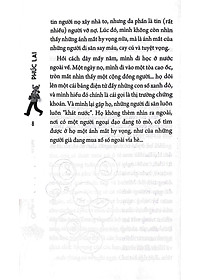 PHÚC LAI
8
tin người nợ xây nhà to, nhưng đa phần là tin (rất
nhiều) người vỡ nợ. Lúc đó, mình không còn nhìn
thấy những ánh mắt hy vọng nữa, mà là ánh mắt của
những người đi săn say máu, cay cú và tuyệt vọng.
Hồi cách đây mấy năm, mình đi học ở nước
ngoài về. Một ngày nọ, mình đi vào một tòa cao ốc,
tròn mắt nhìn thấy một cộng đồng người... họ dõi lên
một cái bảng điện tử đầy những con số xanh đỏ,
và mình hiểu đó chính là cái gọi là thị trường chứng
khoán. Và mình lại gặp họ, những người đi săn luôn
luôn "khát nước". Họ không thèm nhìn ra ngoài,
nơi có một người ngoại đạo đang tò mò, cố tìm
được ở họ một ánh mắt hy vọng, như của những
người già đang mua xổ số ngoài vỉa hè...